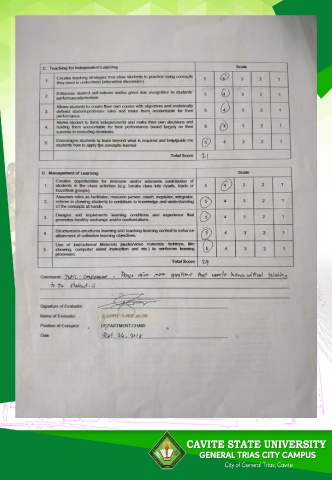 C. Teaching for Independent Learning Scale
1. Creates teaching strategies that allow students to practice using concepts they need to understand (interactive discussion). 5 4 3 2 1
2. Enhances student self-esteem and/or gives due recognition to students' performance/potentials. 5 4 3 2 1
3. Allows students to create their own course with objectives and realistically defined student-professor rules and make them accountable for their performance. 5 4 3 2 1
4. Allows student to think independently and make their own decisions and holding them accountable for their performance based largely on their success in executing decisions. 5 4 3 2 1
5. Encourages students to learn beyond what is required and help/guide the students how to apply the concepts learned. 5 4 3 2 1
Total Score 21
D. Management of Learning Scale
1. Creates opportunities for intensive and/or extensive contribution of students in the class activities (e.g. breaks class into dyads, triads or buzz/task groups). 5 4 3 2 1
2. Assumes roles as facilitator, resource person, coach, inquisitor, integrator, referee in drawing students to contribute to knowledge and understanding of the concepts at hands. 5 4 3 2 1
3. Designs and implements learning conditions and experience that promotes healthy exchange and/or confrontations. 5 4 3 2 1
4. Structures/re-structures learning and teaching-learning context to enhance attainment of collective learning objectives. 5 4 3 2 1
5. Use of Instructional Materials (audio/video materials: fieldtrips, film showing, computer aided instruction and etc.) to reinforces learning processes. 5 4 3 2 1
Total Score 24
Comments: more questions that
to the students
Signature of Evaluator :
Name of Evaluator :
Position of Evaluator : DEPARTMENT CHAIR
Date : Sept 26, 2018
CAVITE STATE UNIVERSITY
GENERAL TRIAS CITY CAMPUS
City of General Trias, Cavite